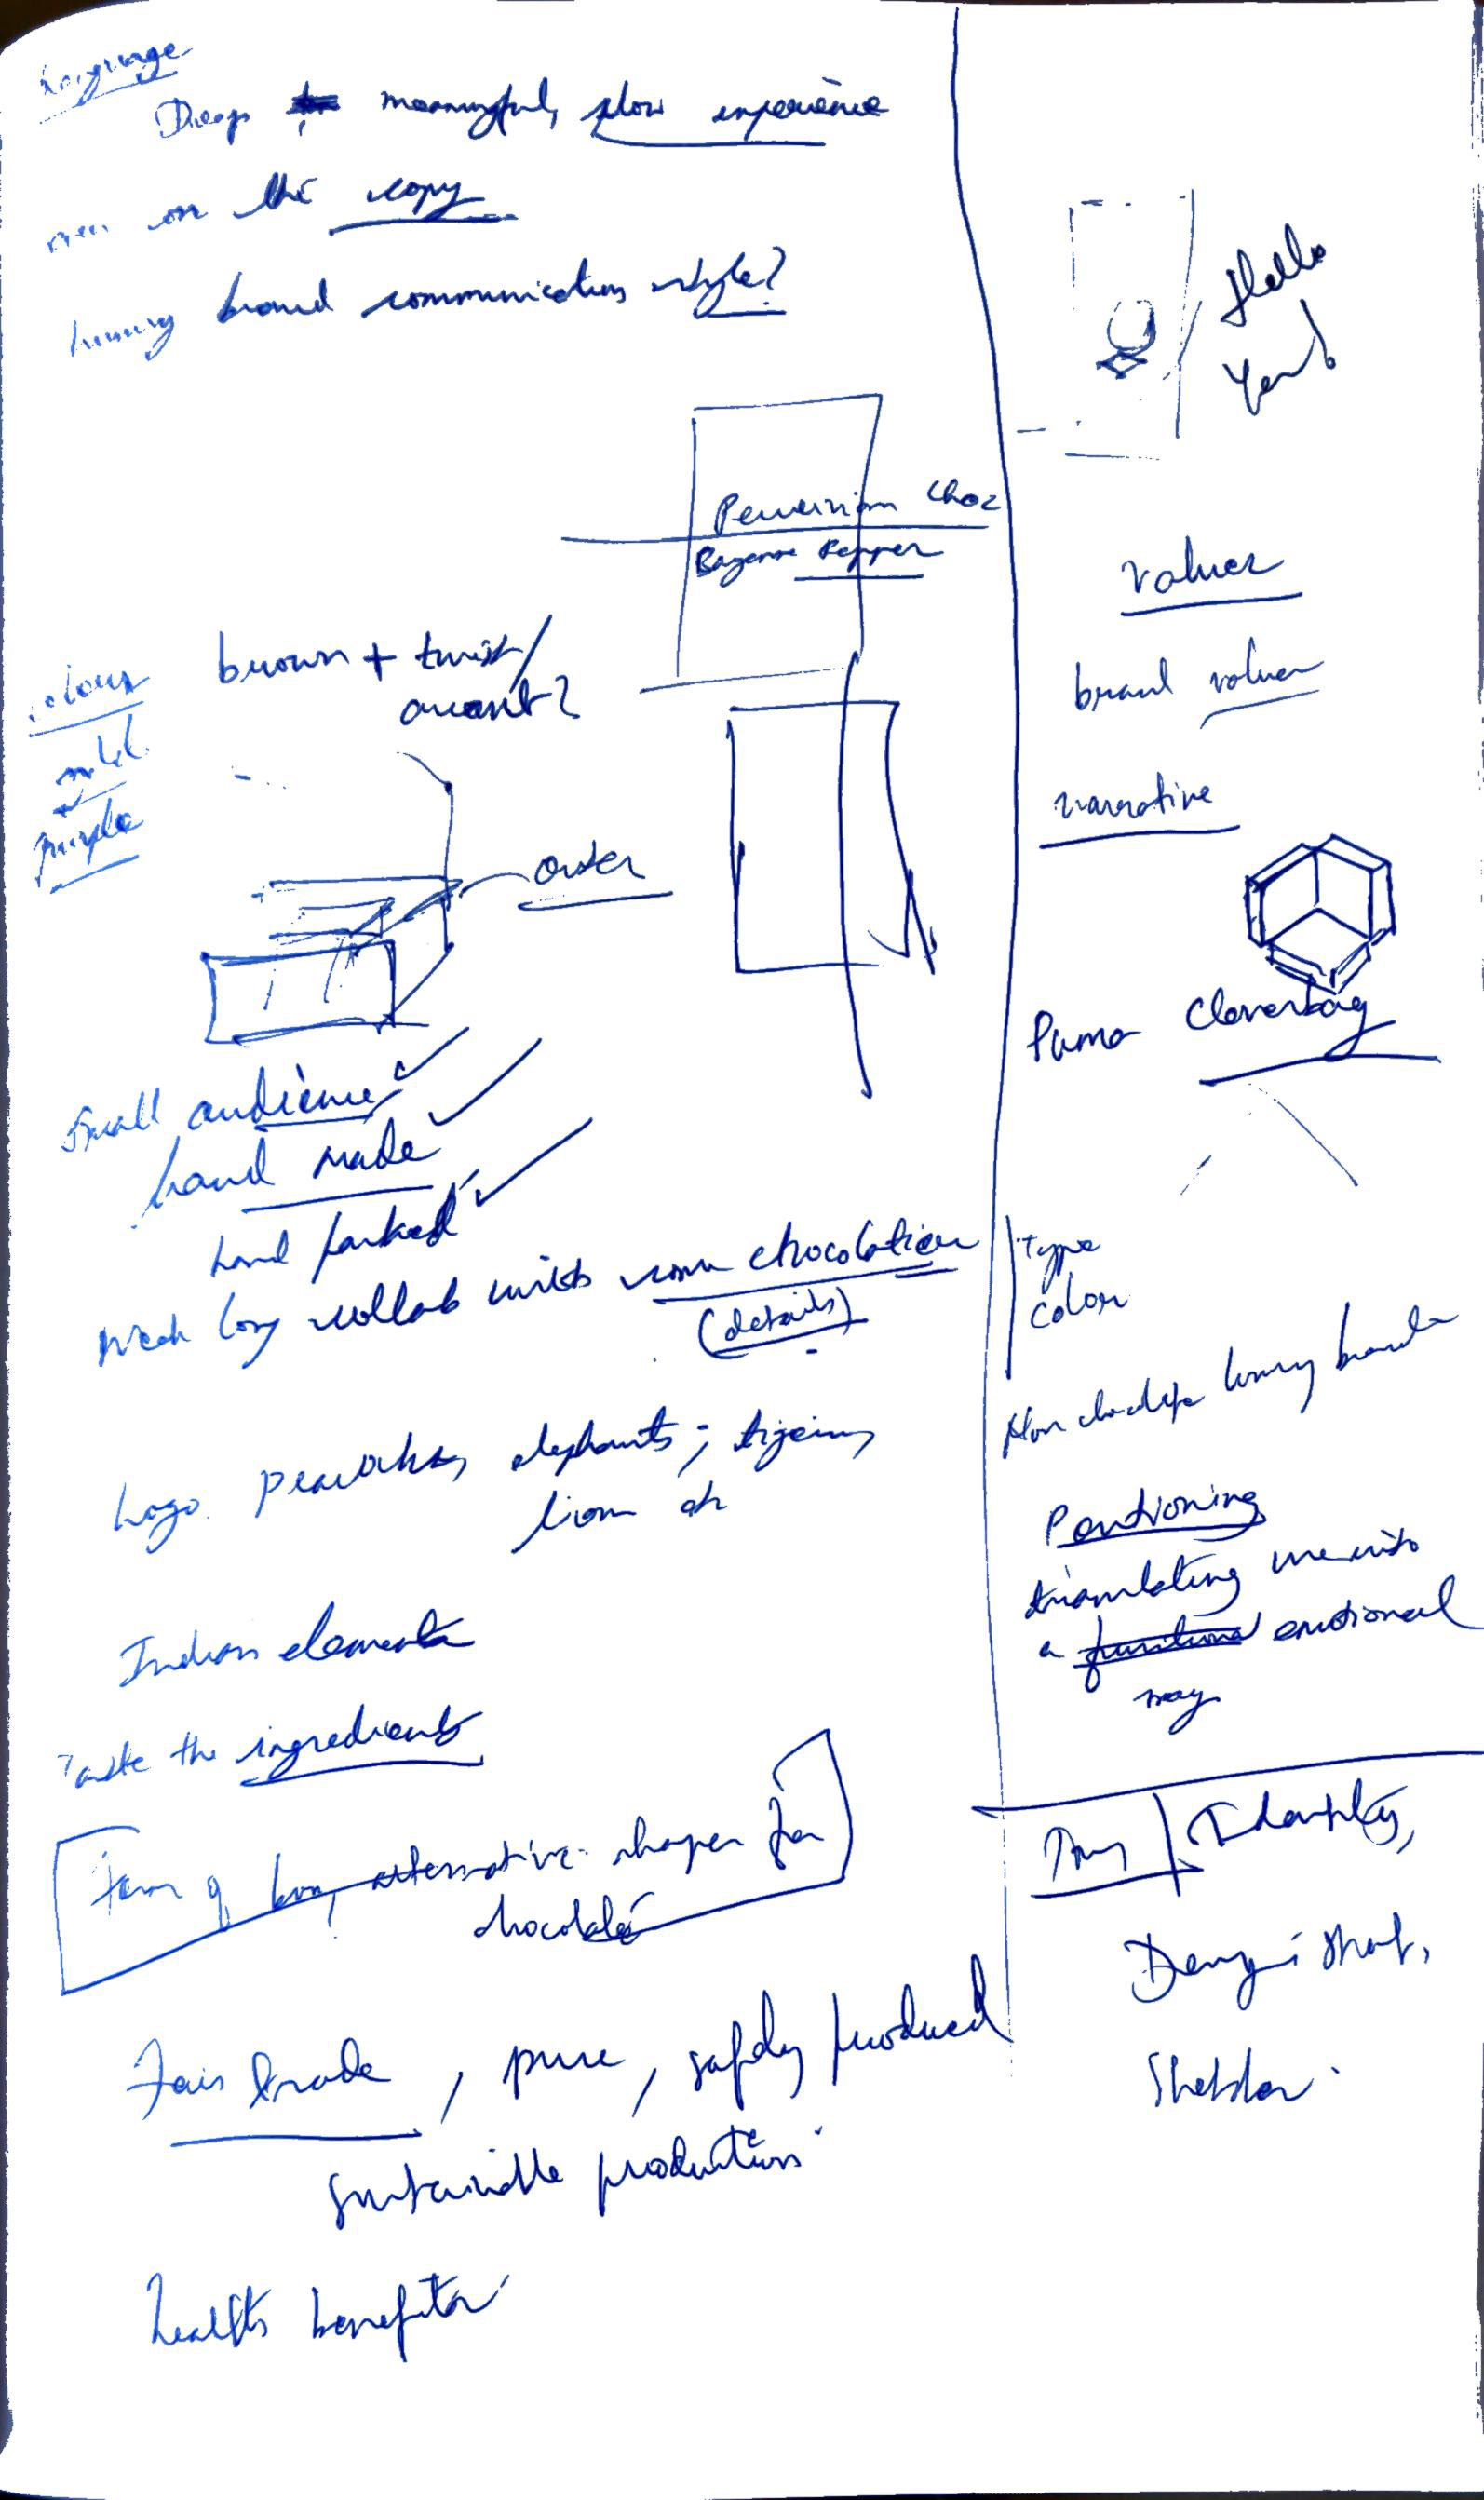 Language
Deep meaningful, slow experience
on the copy
luxury brand communication style?
Peruvian Choc
Pepper
colours brown + twist/
accent?
gold
+
purple
outer
Small audience
hand made
hand packed
week long collab with chocolatier
(details)
Logo peacocks, elephants,
lion
Indian elements
Taste the ingredients
Form of bar, alternative shapes for
chocolate
Fair trade, pure, safely produced
sustainable production
health benefits
Hello
You!
Values
brand values
narrative
Puma Cleverbag
type
color
Non chocolate luxury brands
Positioning
translating into
a emotional
way
Identity,
Design